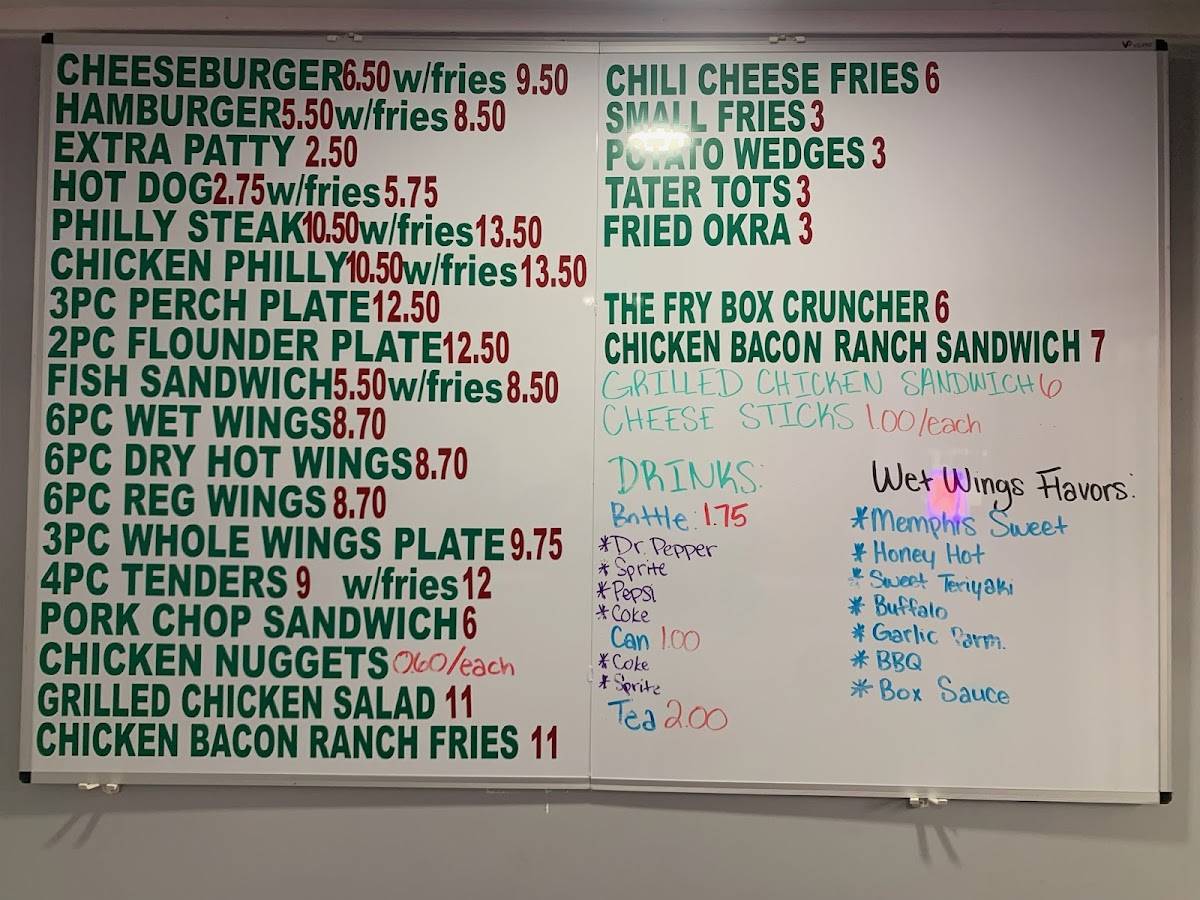 CHEESEBURGER 6.50 w/fries 9.50
HAMBURGER 5.50 w/fries 8.50
EXTRA PATTY 2.50
HOT DOG 2.75 w/fries 5.75
PHILLY STEAK 10.50 w/fries 13.50
CHICKEN PHILLY 10.50 w/fries 13.50
3PC PERCH PLATE 12.50
2PC FLOUNDER PLATE 12.50
FISH SANDWICH 5.50 w/fries 8.50
6PC WET WINGS 8.70
6PC DRY HOT WINGS 8.70
6PC REG WINGS 8.70
3PC WHOLE WINGS PLATE 9.75
4PC TENDERS 9 w/fries 12
PORK CHOP SANDWICH 6
CHICKEN NUGGETS 0.60/each
GRILLED CHICKEN SALAD 11
CHICKEN BACON RANCH FRIES 11
CHILI CHEESE FRIES 6
SMALL FRIES 3
POTATO WEDGES 3
TATER TOTS 3
FRIED OKRA 3
THE FRY BOX CRUNCHER 6
CHICKEN BACON RANCH SANDWICH 7
GRILLED CHICKEN SANDWICH 6
CHEESE STICKS 1.00/each
DRINKS:
Bottle: 1.75
*Dr. Pepper
*Sprite
*Pepsi
*Coke
Can 1.00
*Coke
*Sprite
Tea 2.00
Wet Wings Flavors:
*Memphis Sweet
*Honey Hot
*Sweet Teriyaki
*Buffalo
*Garlic Parm.
*BBQ
*Box Sauce